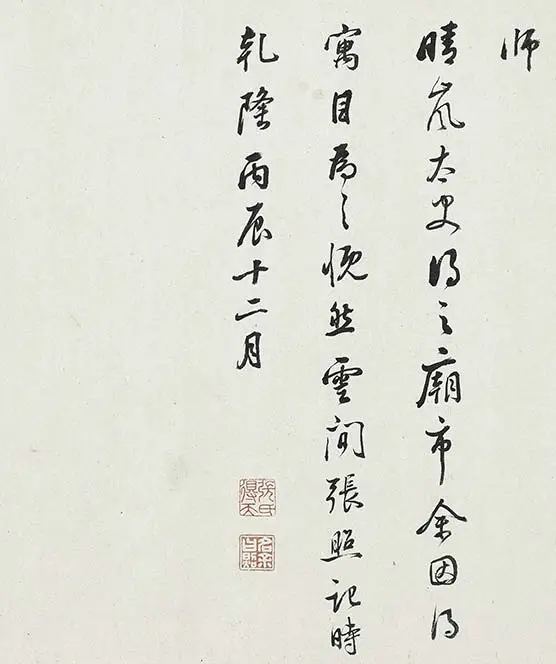 師
晴嵐太史得之廟市余因得
寓目為之慨然雲間張照記時
乾隆丙辰十二月
張氏得天